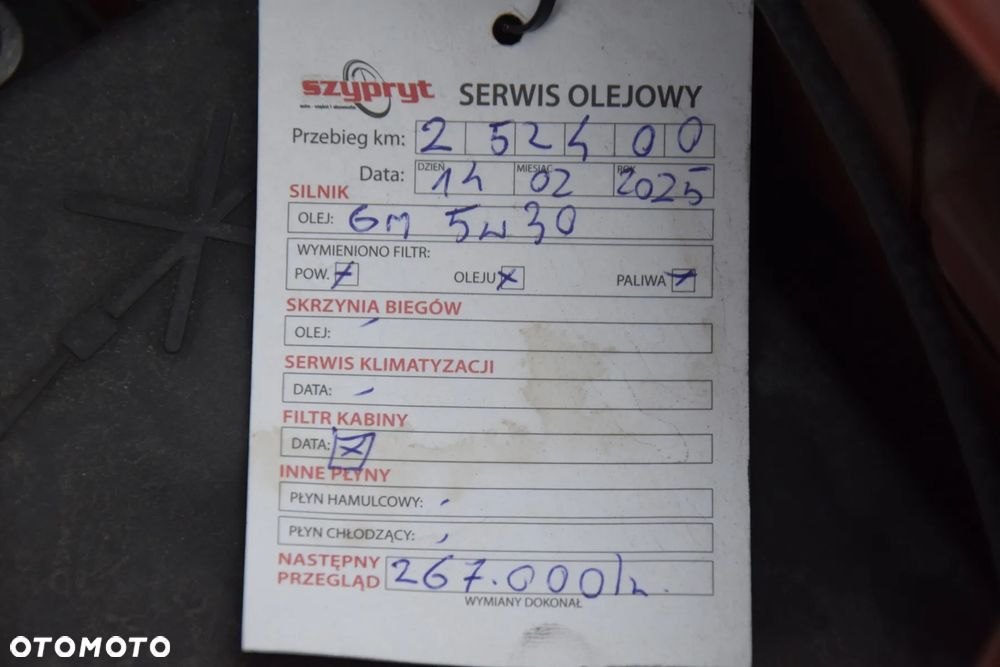 szypryt
SERWIS OLEJOWY
Przebieg km: 252400
Data: DZIEŃ 14 MIESIĄC 02 ROK 2025
SILNIK
OLEJ: GM 5w30
WYMIENIONO FILTR:
POW. OLEJU PALIWA
SKRZYNIA BIEGÓW
OLEJ:
SERWIS KLIMATYZACJI
DATA: -
FILTR KABINY
DATA: X
INNE PŁYNY
PŁYN HAMULCOWY: -
PŁYN CHŁODZĄCY:
NASTĘPNY
PRZEGLĄD 267.000
WYMIANY DOKONAŁ
OTOMOTO